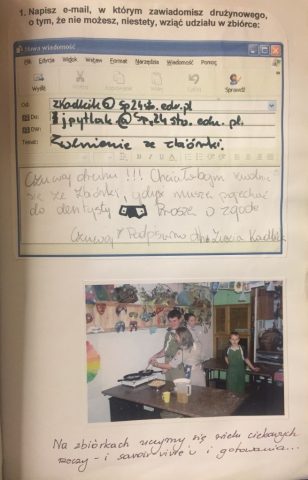 1. Napisz e-mail, w którym zawiadomisz drużynowego,
o tym, że nie możesz, niestety, wziąć udziału w zbiórce:
Nowa wiadomość
Plik Edycja Widok Wstaw Format Narzędzia Wiadomość Pomoc
Wyślij Wytnij Kopiuj Wklej Cofnij Sprawdź
Od: zkadlcik@sp24sto.edu.pl
Do: jpytlak@sp24sto.edu.pl
DW:
Temat: Zwolnienie ze zbiórki
Czuwaj druhu!!! Chciałabym zwolnić
się ze zbiórki, gdyż muszę pojechać
do dentysty Proszę o zgodę
Czuwaj Podpisano dh. Zuzia
Na zbiórkach uczymy się wielu ciekawych
rzeczy - i savoir vivre'u i gotowania...